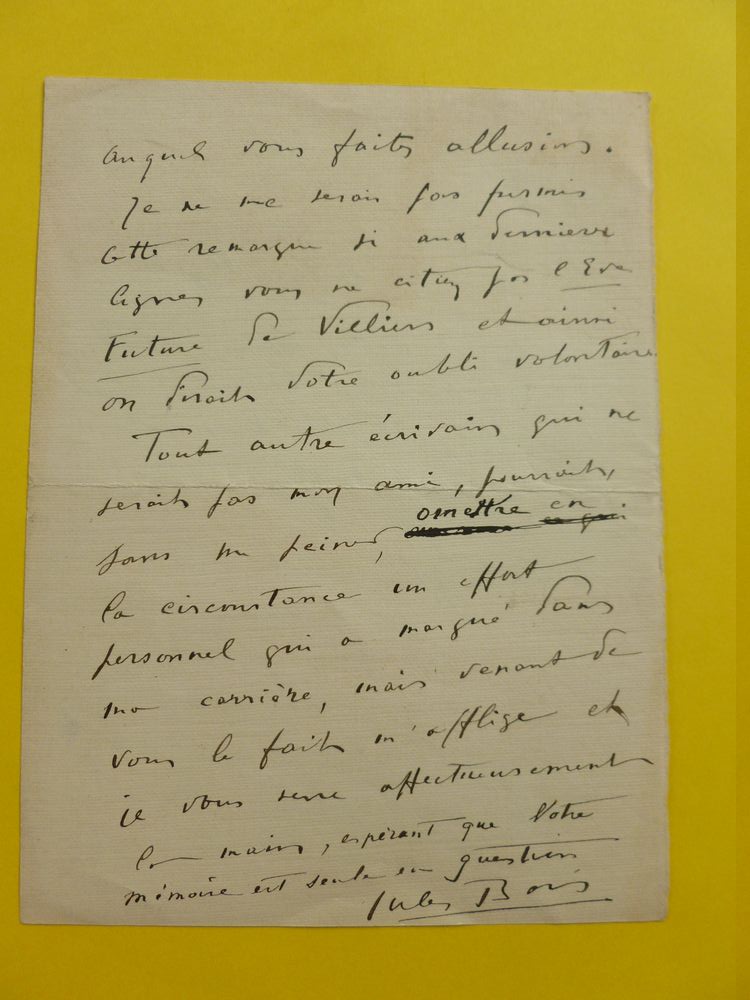 auquel vous faites allusion.
Je ne me serais pas permis
cette remarque si aux dernières
lignes vous ne citiez pas l'Eve
Future de Villiers et ainsi
on dirait votre oubli volontaire.
Tout autre écrivain qui ne
serait pas mon ami, pourrait,
sans me peiner, omettre en
la circonstance un effort
personnel qui a marqué dans
ma carrière, mais venant de
vous le fait m'afflige et
je vous serre affectueusement
la main, espérant que Votre
mémoire est seule en question
Jules Bois